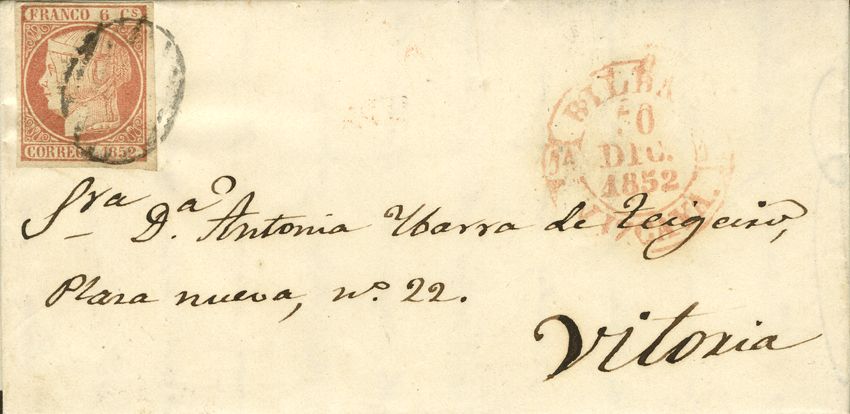 FRANCO 6 Cs
CORREOS 1852
BILBA
30
DIC.
1852
Sra Da. Antonia Ybarra de Teigeiro,
Plaza nueva, no. 22.
Vitoria